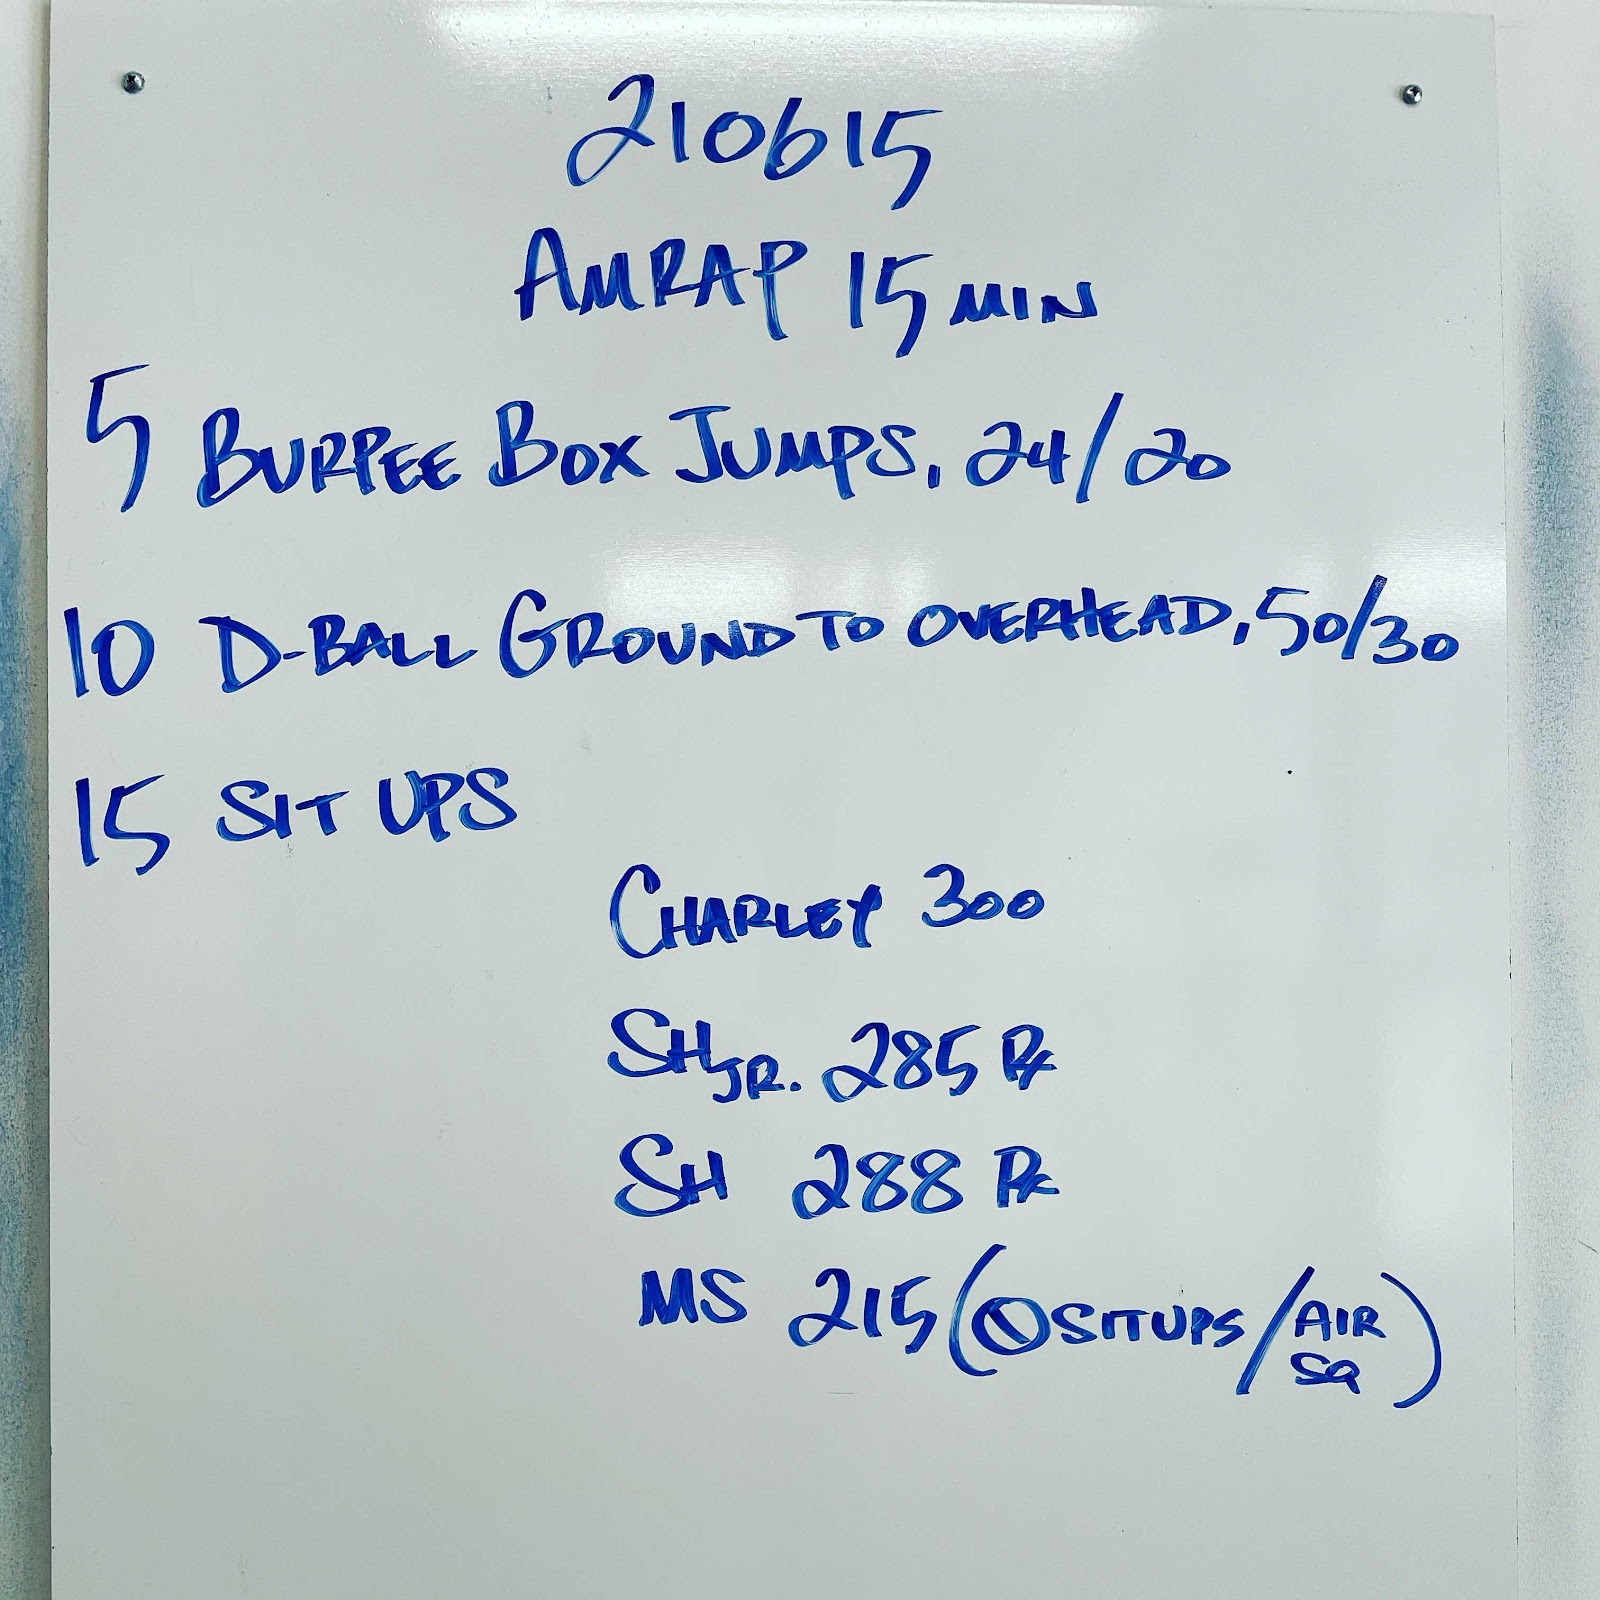 210615
AMRAP 15 MIN
5 BURPEE BOX JUMPS, 24/20
10 D-BALL GROUND TO OVERHEAD, 50/30
15 SIT UPS
CHARLEY 300
SH JR. 285 Rx
SH 288 Rx
MS 215 (⦸ SITUPS/AIR SQ)